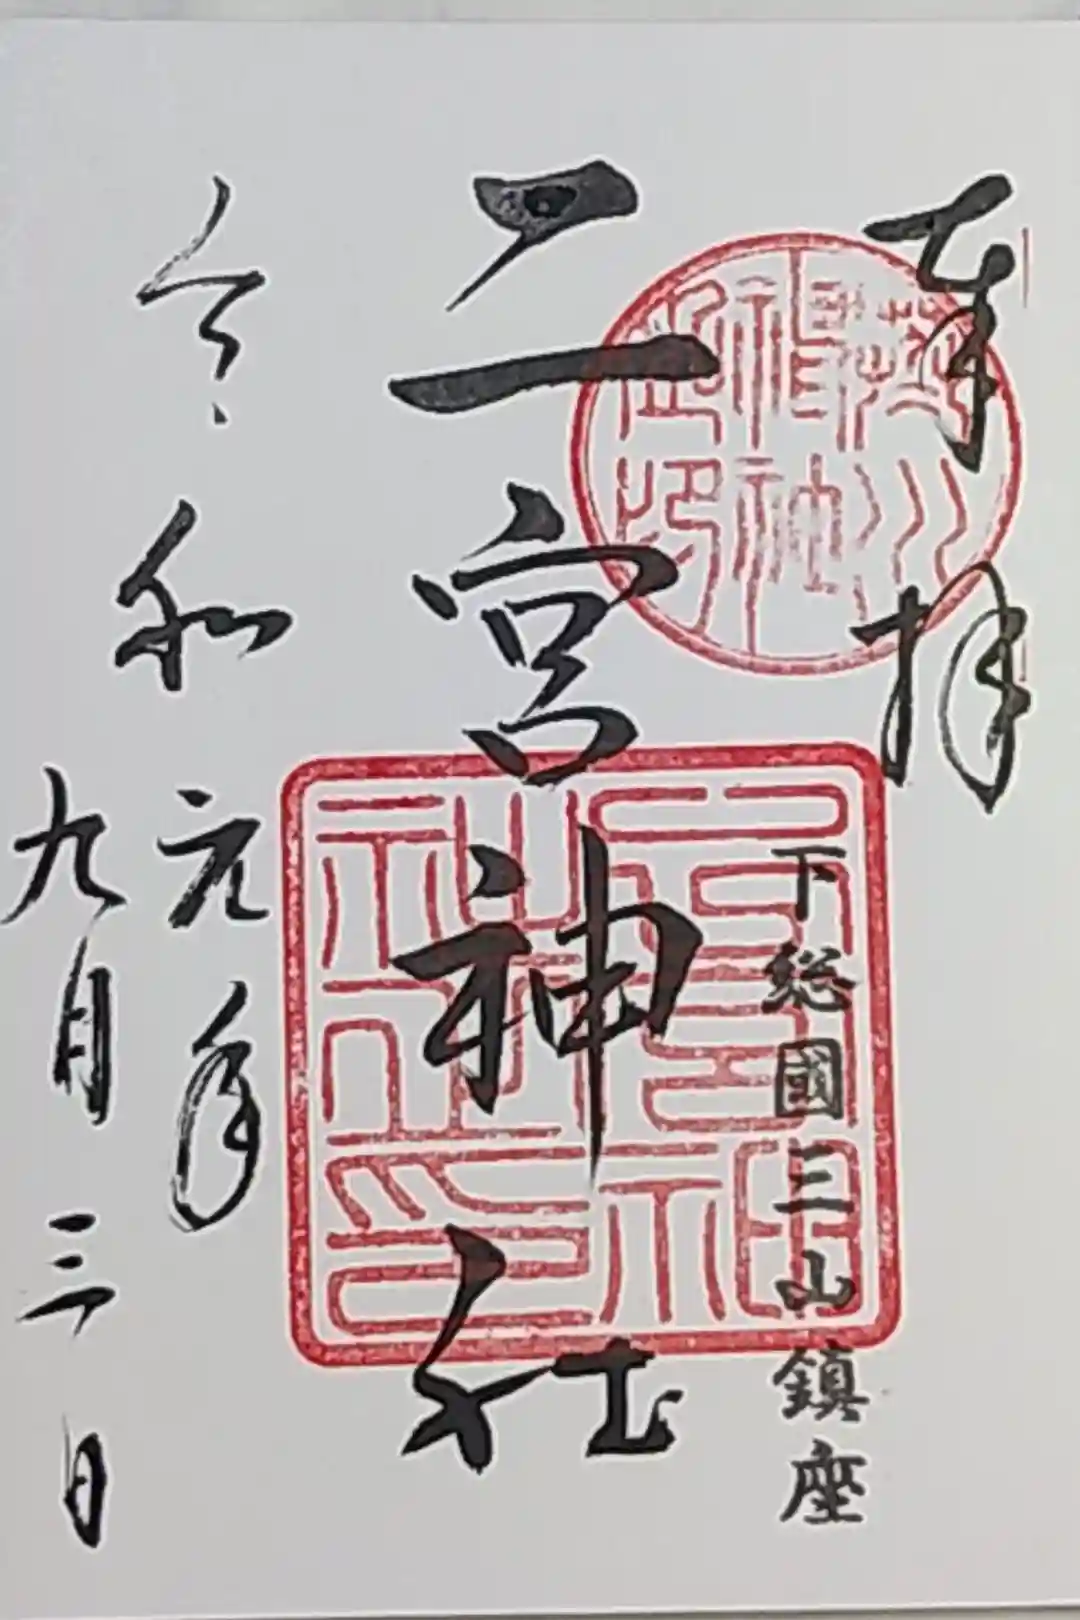 奉拝
下総國三山鎮座
二宮神社
令和元年
九月三日